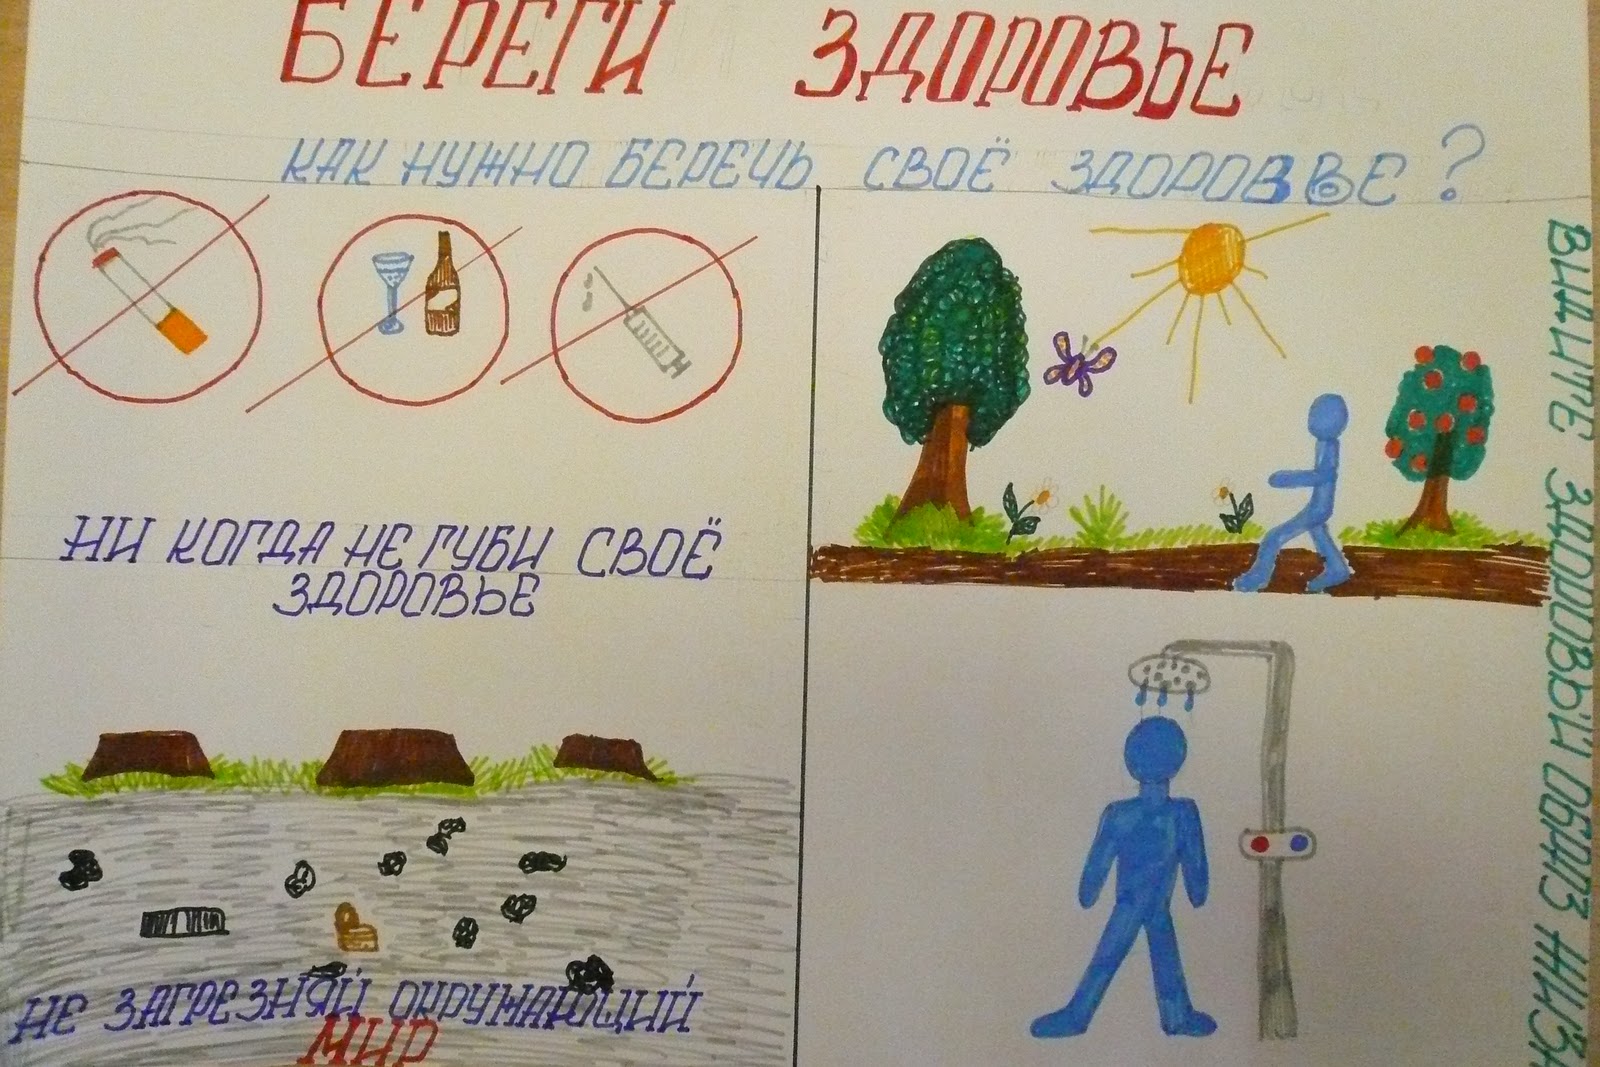 БЕРЕГИ ЗДОРОВЬЕ
КАК НУЖНО БЕРЕЧЬ СВОЁ ЗДОРОВЬЕ?
НИ КОГДА НЕ ГУБИ СВОЁ
ЗДОРОВЬЕ
НЕ ЗАГРЕЗНЯЙ ОКРУЖАЮЩИЙ
МИР
ВИДИТЕ ЗДОРОВЫЙ ОБРАЗ ЖИЗН